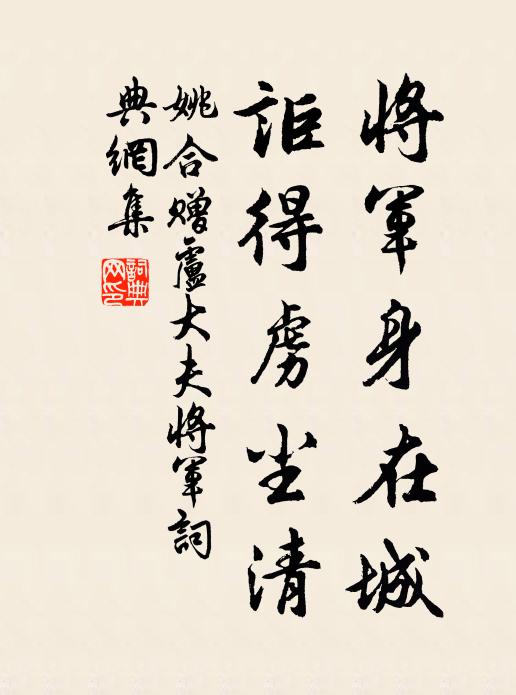 將軍身在城
詎得虜尘清
姚合贈盧大夫將軍詞
典網集
詞典
网印